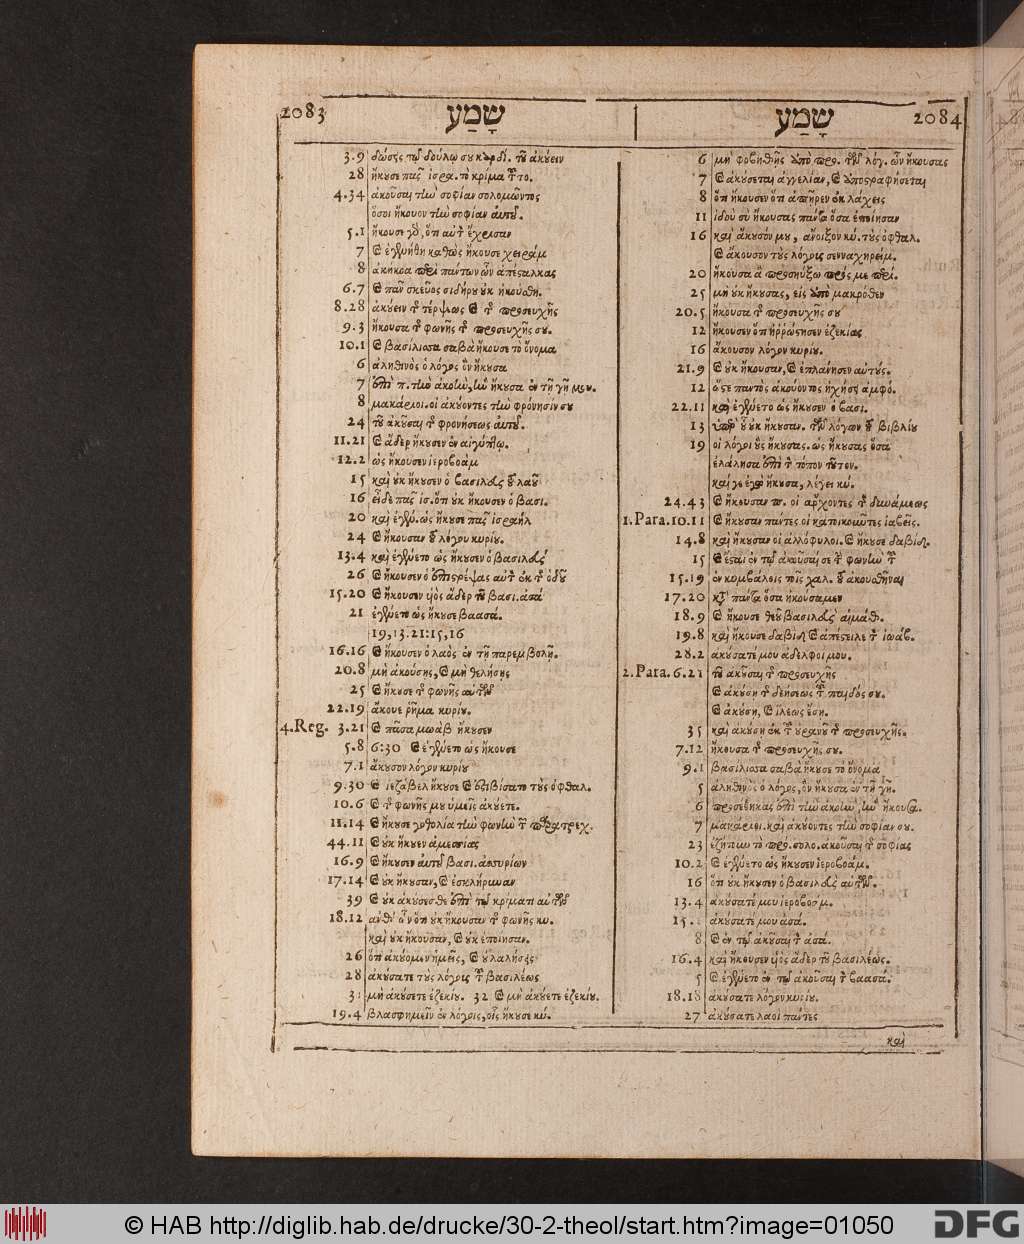 2083 שָׁמַע שָׁמַע 2084
3.9 δώσεις τῷ δούλῳ σου καρδί. τοῦ ἀκούειν
28 ἤκουσε πᾶς ἰσρα. τὸ κρίμα τοῦτο.
4.34 ἀκοῦσαι τὴν σοφίαν σολομῶντος
ὅσοι ἤκουον τὴν σοφίαν αὐτοῦ.
5.1 ἤκουσε γὸ, ὅτι αὐτὸν ἔχρισαν
7 καὶ ἐγενήθη καθὼς ἤκουσε χειράμ
8 ἀκήκοα περὶ πάντων ὧν ἀπέσαλκας
6.7 καὶ πᾶν σκεῦος σιδήρου οὐκ ἠκούσθη.
8.28 ἀκούειν τῆς τέρψεως καὶ τῆς προσευχῆς
9.3 ἤκουσα τῆς φωνῆς τῆς προσευχῆς σου.
10.1 καὶ βασίλισσα σαβὰ ἤκουσε τὸ ὄνομα
6 ἀληθινὸς ὁ λόγος ὃν ἤκουσα
7 ἐπὶ π. τὴν ἀκοὴν, ἣν ἤκουσα ἐν τῇ γῇ μου.
8 μακάριοι. οἱ ἀκούοντες τὴν φρόνησίν σου
24 τοῦ ἀκοῦσαι τῆς φρονήσεως αὐτοῦ.
11.21 καὶ ἄδερ ἤκουσεν ἐν αἰγύπτῳ.
12.2 ὡς ἤκουσεν ἱεροβοὰμ
15 καὶ οὐκ ἤκουσεν ὁ βασιλεὺς τοῦ λαοῦ
16 εἶδε πᾶς ἰσ. ὅτι οὐκ ἤκουσεν ὁ βασι.
20 καὶ ἐγέν. ὡς ἤκουσε πᾶς ἰσραήλ
24 καὶ ἤκουσαν τοῦ λόγου κυρίου.
13.4 καὶ ἐγένετο ὡς ἤκουσεν ὁ βασιλεὺς
26 καὶ ἤκουσεν ὁ ἐπιστρέψας αὐτὸν ἐκ τῆς ὁδοῦ
15.20 καὶ ἤκουσεν υἱὸς ἄδερ τοῦ βασι. ἀσά
21 ἐγένετο ὡς ἤκουσε βαασά.
19,13.21:15,16
16.16 καὶ ἤκουσεν ὁ λαὸς ἐν τῇ παρεμβολῇ.
20.8 μὴ ἀκούσῃς, καὶ μὴ θελήσῃς
25 καὶ ἤκουσε τῆς φωνῆς αὐτῶν
22.19 ἄκουε ῥῆμα κυρίου.
4.Reg. 3.21 καὶ πᾶσα μωὰβ ἤκουσεν
5.8 6:30 καὶ ἐγένετο ὡς ἤκουσε
7.1 ἄκουσον λόγον κυρίου
9.30 καὶ ἰεζάβελ ἤκουσε καὶ ἐστιβίσατο τοὺς ὀφθαλ.
10.6 καὶ τῆς φωνῆς μου ὑμεῖς ἀκούετε.
11.14 καὶ ἤκουσε γοθολία τὴν φωνὴν τῶν παρατρεχ.
44.11 καὶ οὐκ ἤκουεν ἀμεσσίας
16.9 καὶ ἤκουσεν αὐτοῦ βασι. ἀσσυρίων
17.14 καὶ οὐκ ἤκουσαν, καὶ ἐσκλήρυναν
39 καὶ οὐκ ἀκούσεσθε ἐπὶ τῷ κρίματι αὐτῶν
18.12 ἀνθ' ὧν ὅτι οὐκ ἤκουσαν τῆς φωνῆς κυ.
καὶ οὐκ ἤκουσαν, καὶ οὐκ ἐποίησαν.
26 ὅτι ἀκούομεν ἡμεῖς, καὶ οὐ λαλήσεις
28 ἀκούσατε τοὺς λόγους τοῦ βασιλέως
31 μὴ ἀκούσετε ἐζεκίου. 32 καὶ μὴ ἀκούετε ἐζεκίου.
19.4 βλασφημεῖν ἐν λόγοις, οἷς ἤκουσε κύ.
6 μὴ φοβηθῇς ἀπὸ προσ. τῶν λόγ. ὧν ἤκουσας
7 καὶ ἀκούσεται ἀγγελίαν, καὶ ἀποστραφήσεται
8 ὅτι ἤκουσεν ὅτι ἀπῆρεν ἐκ λάχεις
11 ἰδοὺ σὺ ἤκουσας πάντα ὅσα ἐποίησαν
16 καὶ ἄκουσόν μου, ἄνοιξον κύ. τοὺς ὀφθαλ.
καὶ ἄκουσον τοὺς λόγους σενναχηρείμ.
20 ἤκουσα ἃ προσηύξω πρός με περί.
25 μὴ οὐκ ἤκουσας, εἰς ἀπὸ μακρόθεν
20.5 ἤκουσα τῆς προσευχῆς σου
12 ἤκουσεν ὅτι ἠρρώστησεν ἐζεκίας
16 ἄκουσον λόγον κυρίου.
21.9 καὶ οὐκ ἤκουσαν, καὶ ἐπλάνησεν αὐτούς.
12 ὥστε παντὸς ἀκούοντος ἠχήσει ἀμφό.
22.11 καὶ ἐγένετο ὡς ἤκουσεν ὁ βασι.
13 ὑπὲρ οὗ οὐκ ἤκουσαν. τῶν λόγων τοῦ βιβλίου
19 οἱ λόγοι οὓς ἤκουσας. ὡς ἤκουσας ὅσα
ἐλάλησα ἐπὶ τὸν τόπον τοῦτον.
καί γε ἐγὼ ἤκουσα, λέγει κύ.
24.43 καὶ ἤκουσαν π. οἱ ἄρχοντες τῆς δυνάμεως
1.Para.10.11 καὶ ἤκουσαν πάντες οἱ κατοικοῦντες ἰαβεῖς.
14.8 καὶ ἤκουσαν οἱ ἀλλόφυλοι. καὶ ἤκουσε δαβίδ.
15 καὶ ἔσται ἐν τῷ ἀκοῦσαί σε τὴν φωνὴν τ
15.19 ἐν κυμβάλοις τοῖς χαλ. τοῦ ἀκουσθῆναι
17.20 κατὰ πάντα ὅσα ἠκούσαμεν
18.9 καὶ ἤκουσε θεοῦ βασιλεὺς αἰμάθ.
19.8 καὶ ἤκουσε δαβίδ καὶ ἀπέστειλε τὸν ἰωάβ.
28.2 ἀκούσατέ μου ἀδελφοί μου.
2.Para. 6.21 τοῦ ἀκοῦσαι τῆς προσευχῆς
καὶ ἀκούσῃ τῆς δεήσεως τοῦ παιδός σου.
καὶ ἀκούσῃ, καὶ ἵλεως ἔσῃ.
35 καὶ ἀκούσῃ ἐκ τοῦ οὐρανοῦ τῆς προσευχῆς.
7.12 ἤκουσα τῆς προσευχῆς σου.
9.1 βασίλισσα σαβὰ ἤκουσε τὸ ὄνομα
5 ἀληθινὸς ὁ λόγος, ὃν ἤκουσα ἐν τῇ γῇ.
6 προσέθηκας ἐπὶ τὴν ἀκοὴν, ἣν ἤκουσα.
7 μακάριοι. καὶ ἀκούοντες τὴν σοφίαν σου.
23 ἐζήτουν τὸ προσ. σολο. ἀκοῦσαι τῆς σοφίας
10.2 καὶ ἐγένετο ὡς ἤκουσεν ἱεροβοάμ.
16 ὅτι οὐκ ἤκουσεν ὁ βασιλεὺς αὐτῶν.
13.4 ἀκούσατέ μου ἱεροβοάμ.
15. ἀκούσατέ μου ἀσά.
8 καὶ ἐν τῷ ἀκοῦσαι τὸν ἀσά.
16.4 καὶ ἤκουσεν υἱὸς ἄδερ τοῦ βασιλέως.
5 καὶ ἐγένετο ἐν τῷ ἀκοῦσαι τὸν βαασά.
18.18 ἀκούσατε λόγον κυρίου.
27 ἀκούσατε λαοὶ πάντες
καὶ
© HAB http://diglib.hab.de/drucke/30-2-theol/start.htm?image=01050
DFG